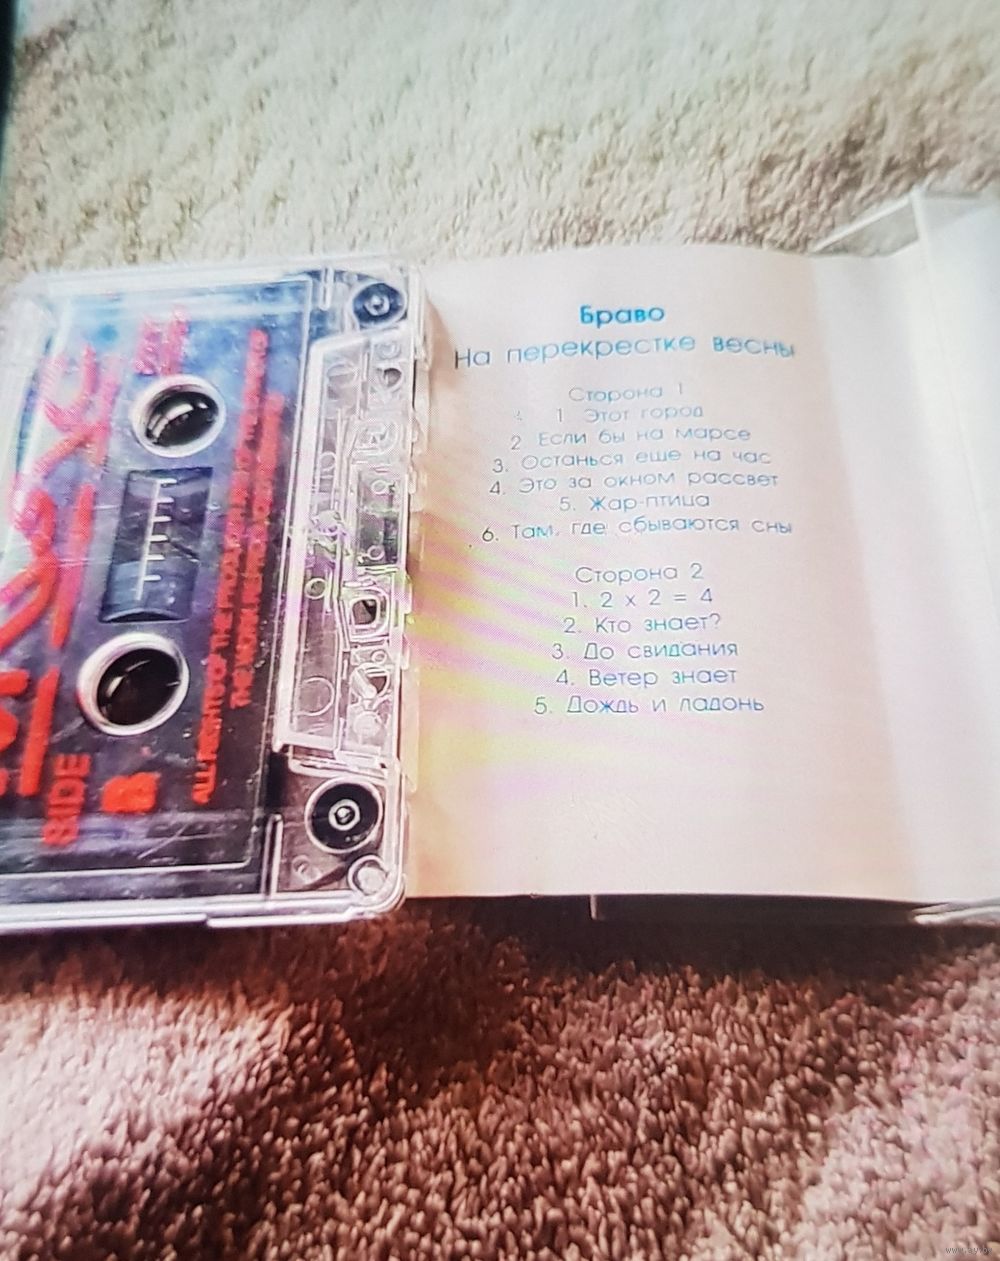 Браво
На перекрестке весны
Сторона 1
1. Этот город
2. Если бы на марсе
3. Останься еше на час
4. Это за окном рассвет
5. Жар-птица
6. Там, где сбываются сны
Сторона 2
1. 2 x 2 = 4
2. Кто знает?
3. До свидания
4. Ветер знает
5. Дождь и ладонь
SIDE
B
ALL RIGHTS OF THE
THE WORK REPRODUCED
www.ay.by